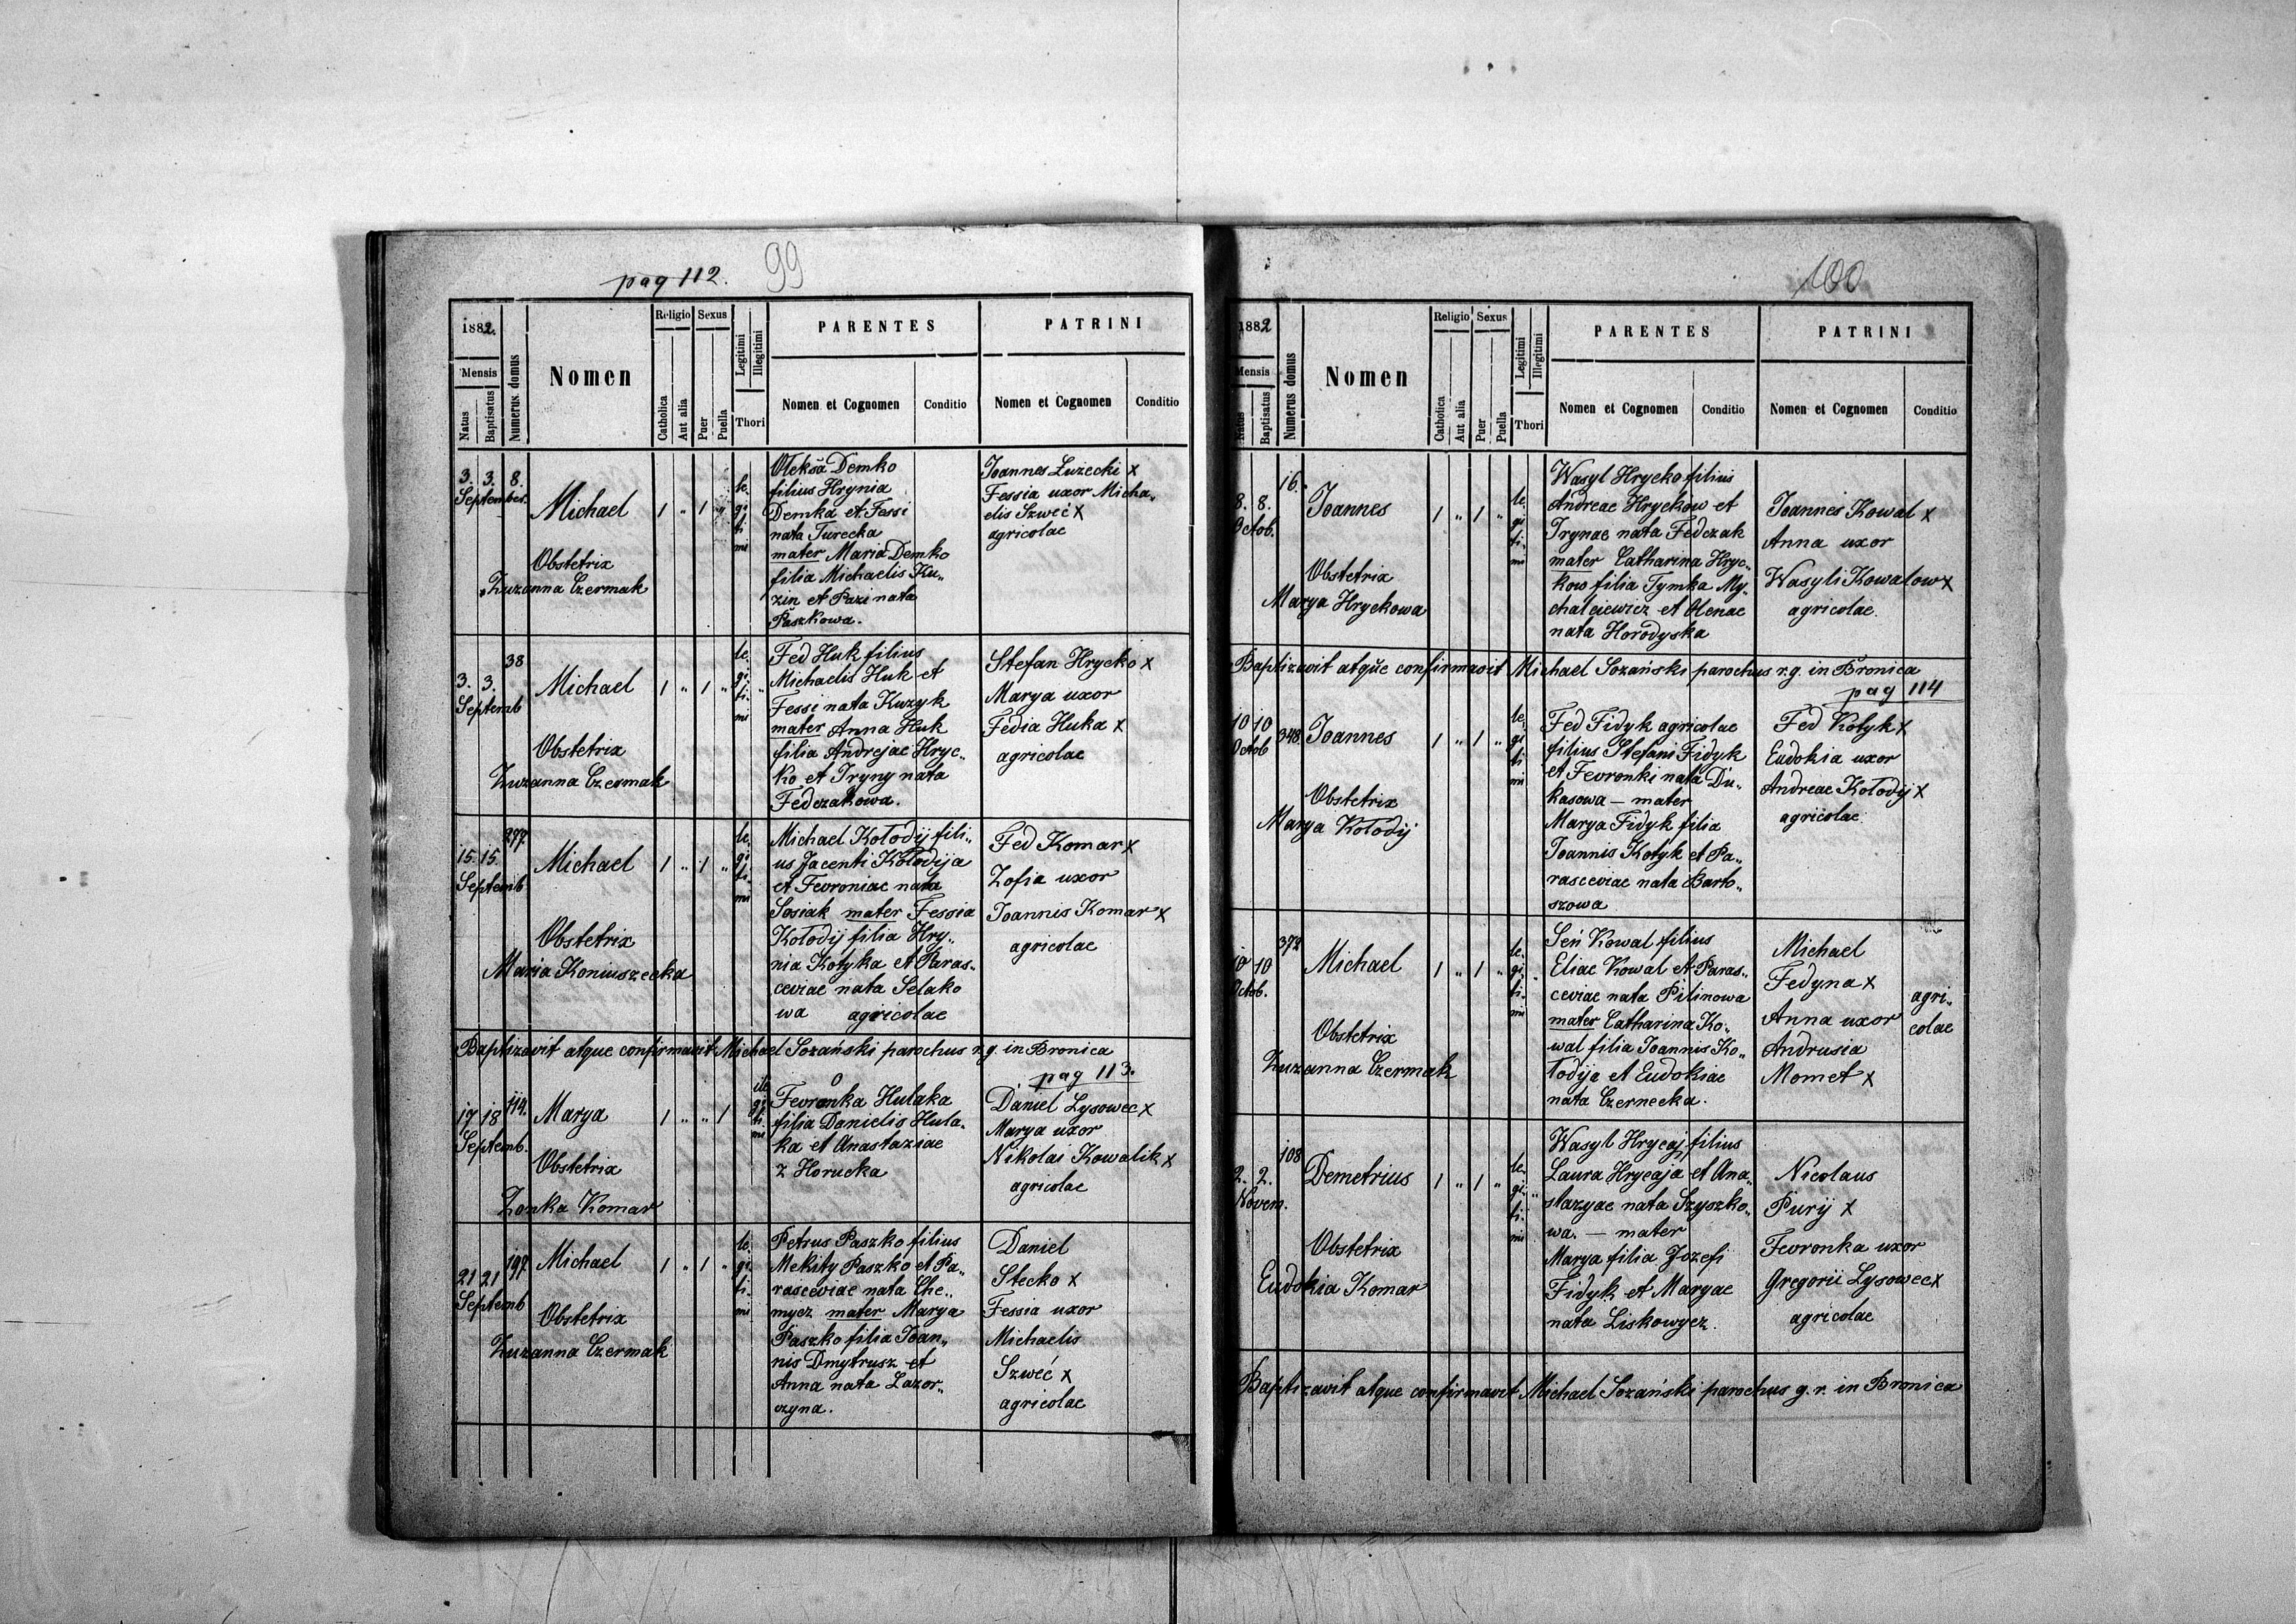 pag 112. 99
1882.
Mensis
Natus
Baptisatus
Numerus domus
Nomen
Religio
Catholica
Aut alia
Sexus
Puer
Puella
Legitimi
Illegitimi
Thori
PARENTES
Nomen et Cognomen
Conditio
PATRINI
Nomen et Cognomen
Conditio
3. 3. 8.
September.
Michael
1 " 1 "
le.
gi
ti.
mi
Obstetrix
Zuzanna Czermak
Oleksa Demko
filius Hrynia
Demka et Fessi
nata Turecka
mater Maria Demko
filia Michaelis Ku„
zin et Pazi nata
Paszkowa.
Joannes Luzecki x
Fessia uxor Micha„
elis Szweć x
agricolae
38
3. 3.
Septemb
Michael
1 " 1 " "
le.
gi.
ti.
mi
Obstetrix
Zuzanna Czermak
Fed Huk filius
Michaelis Huk et
Fessi nata Kuzyk
mater Anna Huk
filia Andrejae Hryc„
ko et Iryny nata
Fedczakowa.
Stefan Hrycko x
Marya uxor
Fedia Huka x
agricolae
277.
15. 15.
Septemb
Michael
1 " 1 "
le.
gi
ti.
mi
Obstetrix
Maria Koniuszecka
Michael Kołodij fili„
us Jacenti Kołodija
et Fevroniae nata
Sosiak mater Fessia
Kołodij filia Hry„
nia Kotyka et Paras„
ceviae nata Selako
wa agricolae
Fed Komar x
Zofia uxor
Joannis Komar x
agricolae
Baptizavit atque confirmavit Michael Sozański parochus r.g. in Bronica
pag 113.
114.
17 18
Septemb.
Marya
1 " " 1
ile
gi
ti.
mi
Obstetrix
Zonka Komar
Fevronka Hulaka
filia Danielis Hula„
ka et Anastaziae
z Horucka
Daniel Lysowec x
Marya uxor
Nikolai Kowalik x
agricolae
197.
21 21
Septemb
Michael
1 " 1 "
le.
gi.
ti.
mi
Obstetrix
Zuzanna Czermak
Petrus Paszko filius
Mekity Paszko et Pa„
rasceviae nata Che„
mycz mater Marya
Paszko filia Joan„
nis Dmytrusz et
Anna nata Lazor„
czyna.
Daniel
Stecko x
Fessia uxor
Michaelis
Szweć x
agricolae
100
1882
Mensis
Natus
Baptisatus
Numerus domus
Nomen
Religio
Catholica
Aut alia
Sexus
Puer
Puella
Legitimi
Illegitimi
Thori
PARENTES
Nomen et Cognomen
Conditio
PATRINI
Nomen et Cognomen
Conditio
16.
8. 8.
Octob.
Joannes
1 " 1 "
le.
gi
ti.
mi
Obstetrix
Marya Hryckowa
Wasyl Hrycko filius
Andreae Hryckow et
Irynae nata Fedczak
mater Catharina Hryc„
kow filia Tymka My„
chalciewicz et Olenae
nata Horodyska
Joannes Kowal x
Anna uxor
Wasyli Kowalow x
agricolae.
Baptizavit atque confirmavit Michael Sozański parochus r.g. in Bronica
pag 114
10 10
Octob
348.
Joannes
1 " 1 "
le.
gi
ti
mi
Obstetrix
Marya Kołodij
Fed Fidyk agricolae
filius Stefani Fidyk
et Fevronki nata Du„
kasowa — mater
Marya Fidyk filia
Joannis Kotyk et Pa„
rasceviae nata Barto„
szowa
Fed Kotyk x
Eudokia uxor
Andreae Kołodij x
agricolae
372
10 10
Octob.
Michael
1 " 1 " "
le.
gi.
ti.
mi
Obstetrix
Zuzanna Czermak
Seń Kowal filius
Eliae Kowal et Paras„
ceviae nata Pilinowa
mater Catharina Ko„
wal filia Joannis Ko„
łodija et Eudokiae
nata Czernecka.
Michael
Fedyna x
Anna uxor
Andrusia
Momet x
agri„
colae
108
2. 2.
Novem.
Demetrius
1 " 1 " "
le.
gi.
ti.
mi
Obstetrix
Eudokia Komar
Wasyl Hrycaj filius
Laura Hrycaja et Ana„
stazyae nata Szyszko„
wa. — mater
Marya filia Jozefi
Fidyk et Maryae
nata Liskowycz.
Nicolaus
Puryj x
Fevronka uxor
Gregorii Lysowec x
agricolae
Baptizavit atque confirmavit Michael Sozański parochus g.r. in Bronica